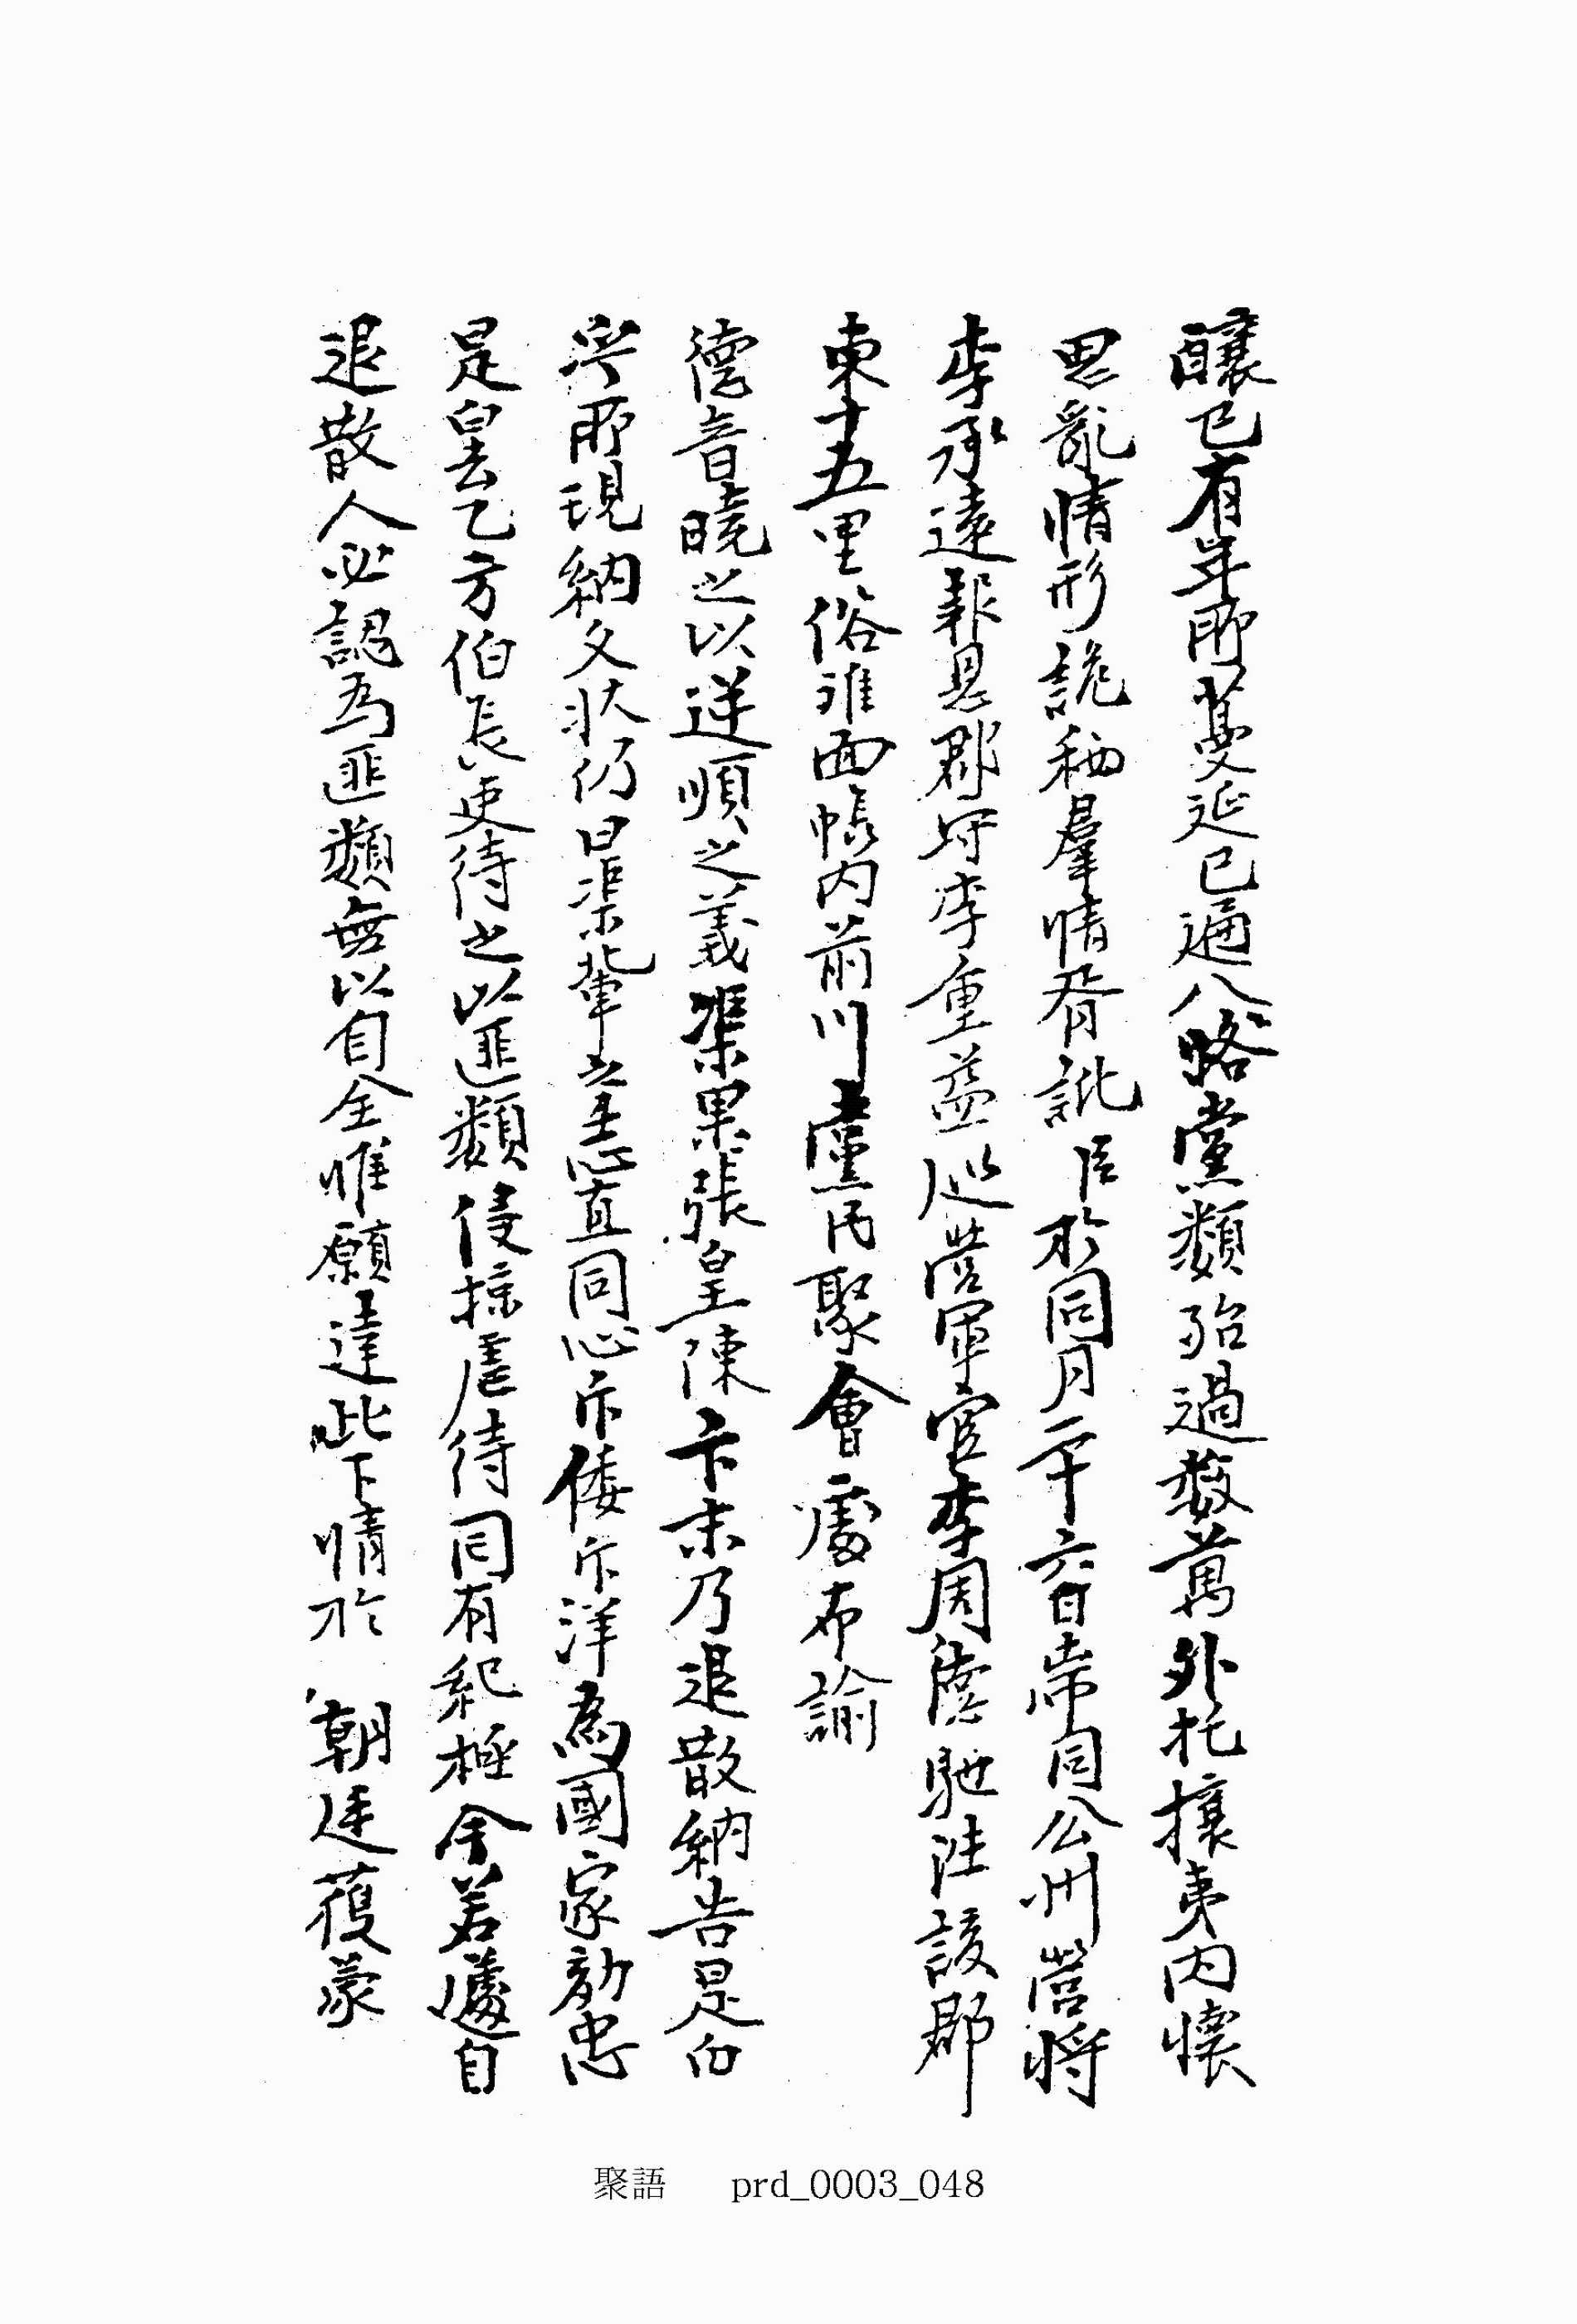 釀已有年所蔓延已遍八路黨類殆過数萬外托攘夷內懷
思亂情形詭秘羣情胥訛臣於同月二十六日帶同公州營將
李承遠報恩郡守李重益巡營軍官李周德馳往該郡
東十五里俗離面帳內前川黨民聚會處布諭
德音曉之以逆順之義渠果張皇陳卞末乃退散納告是白
乎所現納文狀仍曰渠輩之志亶同心斥倭斥洋爲國家効忠
是罢乙方伯長吏待之以匪類侵掠虐待罔有紀極今若遽自
退散人必認爲匪類無以自全惟願達此下情於 朝廷獲蒙
聚語 prd_0003_048